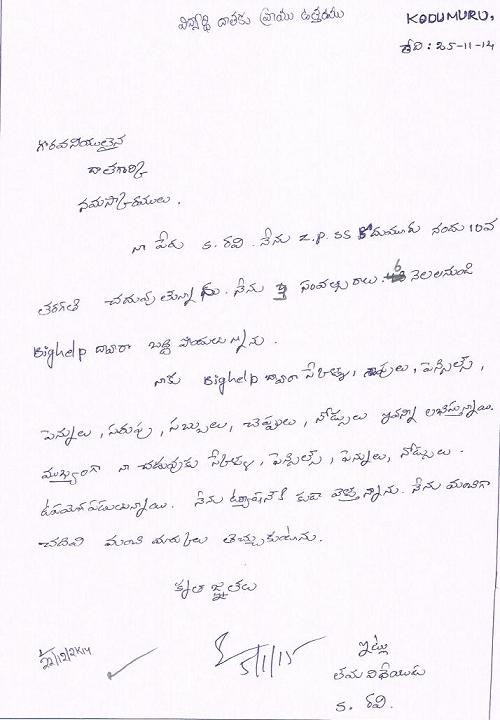 విద్యార్థి దాతకు వ్రాయు ఉత్తరము
KODUMURU,
తేది : 25-11-14
గౌరవనీయులైన
దాతగారికి
నమస్కారములు.
నా పేరు S. రవి. నేను Z.P. SS కోడుమూరు నందు 10వ
తరగతి చదువుతున్నాను. నేను 3 సంవత్సరాలు. 6 నెలలనుండి
Bighelp ద్వారా లబ్ది పొందుతున్నాను.
నాకు Bighelp ద్వారా స్కేళ్ళు, పెన్సిల్స్,
పెన్నులు, సరుపు, సబ్బులు, చెప్పులు, నోట్సులు ఇవన్నీ లభిస్తున్నాయి.
ముఖ్యంగా నా చదువుకు స్కేళ్ళు, పెన్సిల్స్, పెన్నులు, నోట్సులు.
ఉపయోగపడుతున్నాయి. నేను ట్యూషన్‌కి కుడా వెళ్తున్నాను. నేను మంచిగా
చదివి మంచి మార్కులు తెచ్చుకుంటును.
కృతజ్ఞతలు
22/12/2K14
5/1/15
ఇట్లు
తమ విధేయుడు
S. రవి.